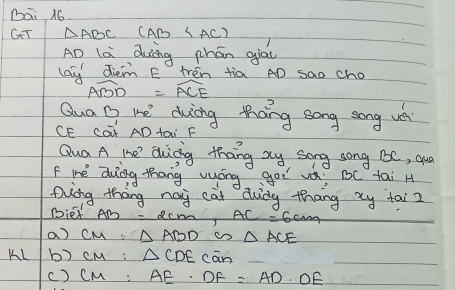 Bài 16.
GT △ABC (AB < AC)
AD là đường phân giác
lấy điểm E trên tia AD sao cho
ABD = ACE
Qua B kẻ đường thẳng song song với
CE cắt AD tại F
Qua A kẻ đường thẳng xy song song BC, qua
F kẻ đường thẳng vuông goc với BC tai H
Đường thẳng này cắt đường thẳng xy tại I
Biết AB = 2cm, AC = 6cm
a) CM : △ABD ∽ △ACE
KL b) CM : △CDE cân
c) CM : AE . DF = AD . DE